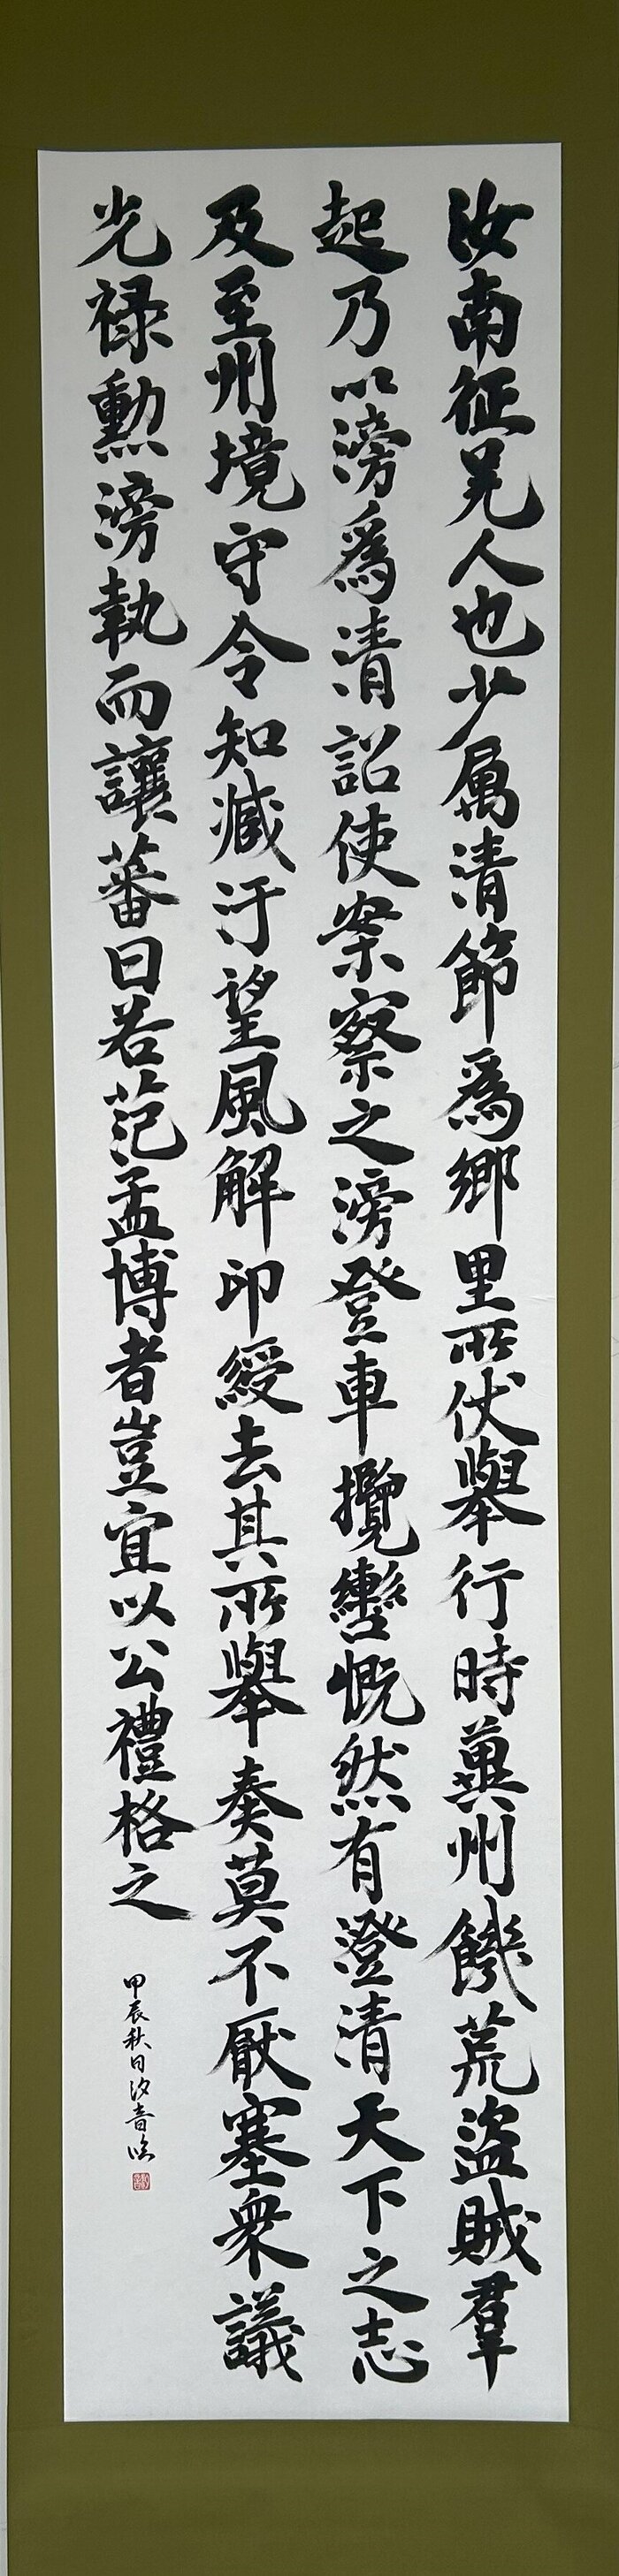 汝南征羌人也少属清節爲鄉里所伏舉行時兾州饑荒盜賊羣
起乃以滂爲清詔使案察之滂登車攬轡慨然有澄清天下之志
及至州境守令知臧汙望風解印綬去其所舉奏莫不厭塞衆議
光禄勳滂執而讓蕃曰若范孟博者豈宜以公禮格之
甲辰秋日汐音臨